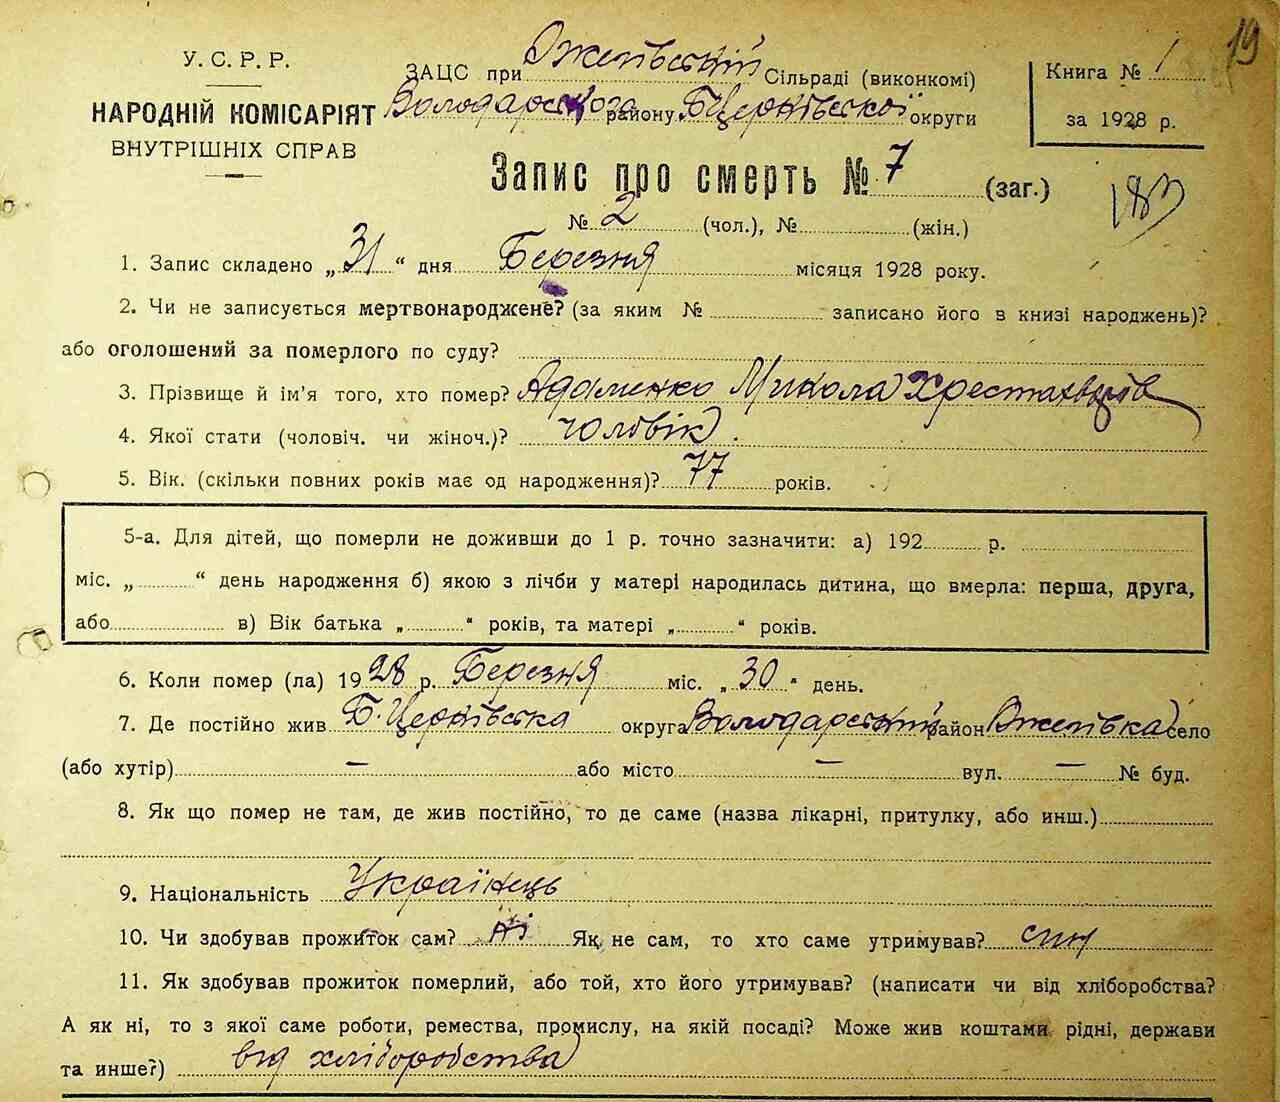 19
У. С. Р. Р.
НАРОДНІЙ КОМІСАРІЯТ
ВНУТРІШНІХ СПРАВ
ЗАЦС при Ожегівській Сільраді (виконкомі)
Володарського району Б.Церківської округи
Книга № 1
за 1928 р.
Запис про смерть № 7 (заг.)
183
№ 2 (чол.), № (жін.)
1. Запис складено „31“ дня Березня місяця 1928 року.
2. Чи не записується мертвонароджене? (за яким № записано його в книзі народжень)?
або оголошений за померлого по суду?
3. Прізвище й ім'я того, хто помер? Адаменко Микола
4. Якої стати (чоловіч. чи жіноч.)? чоловік.
5. Вік. (скільки повних років має од народження)? 77 років.
5-а. Для дітей, що померли не доживши до 1 р. точно зазначити: а) 192 р.
міс. „ “ день народження б) якою з лічби у матері народилась дитина, що вмерла: перша, друга,
або в) Вік батька „ “ років, та матері „ “ років.
6. Коли помер (ла) 1928 р. Березня міс. „30“ день.
7. Де постійно жив Б.Церківська округа Володарський район Ожегівка село
(або хутір) — або місто — вул. — № буд.
8. Як що помер не там, де жив постійно, то де саме (назва лікарні, притулку, або инш.)
9. Національність Українець
10. Чи здобував прожиток сам? ні Як не сам, то хто саме утримував? син
11. Як здобував прожиток померлий, або той, хто його утримував? (написати чи від хліборобства?
А як ні, то з якої саме роботи, ремества, промислу, на якій посаді? Може жив коштами рідні, держави
та инше?) від хліборобства